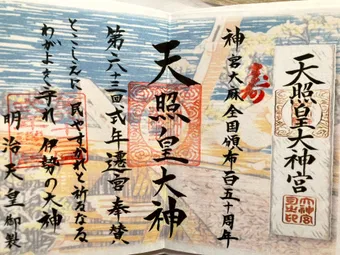 天照皇大神宮
神宮大麻全国頒布百五十周年
寿
天照皇大神
第六十三回式年遷宮奉賛
とこしへに民やすかれと祈るなる
わがよを守れ伊勢の大神
明治天皇御製